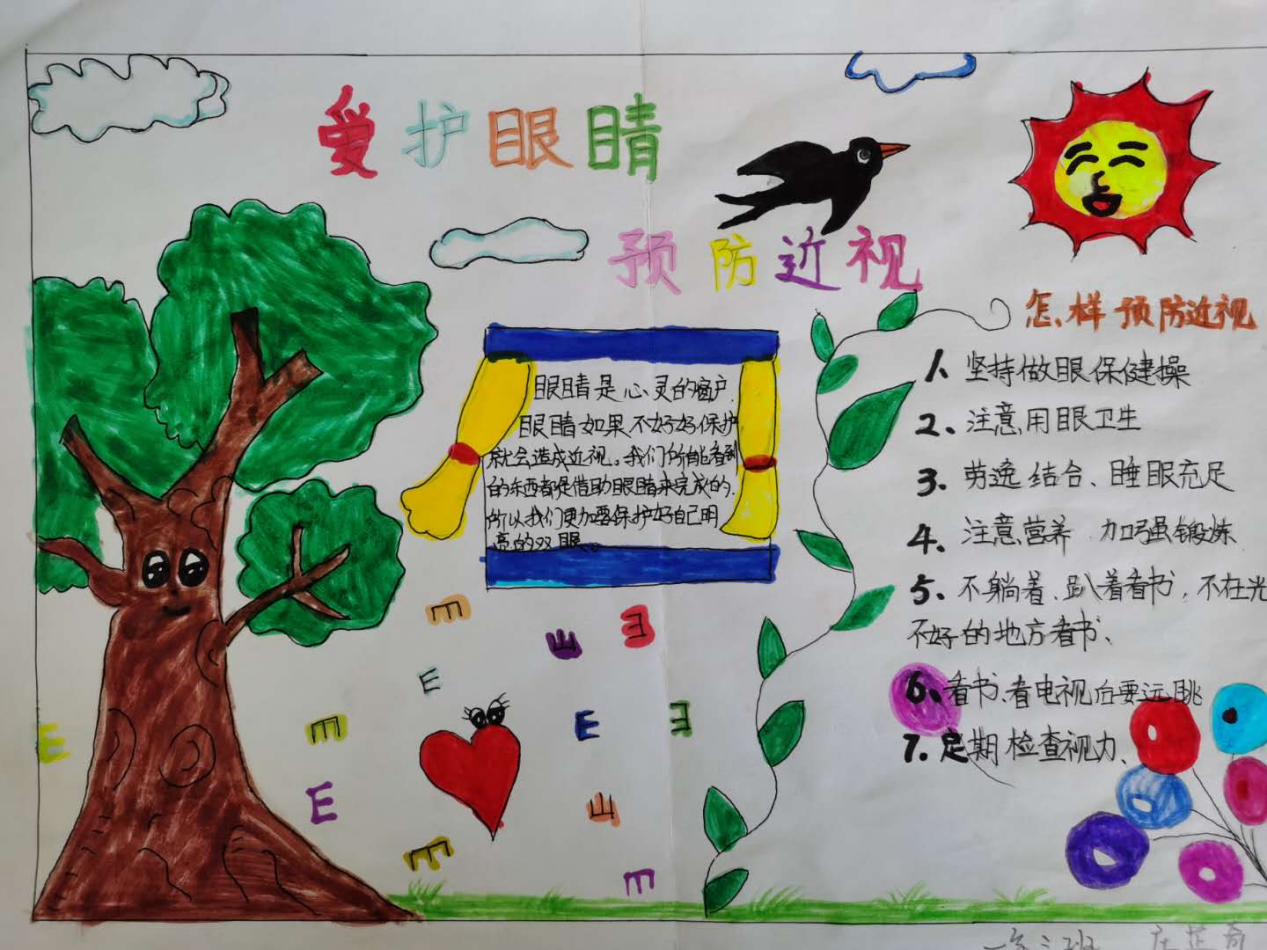 爱护眼睛
预防近视
眼睛是心灵的窗户.
眼睛如果不好好保护
就会造成近视。我们所能看到
的东西都是借助眼睛来完成的.
所以我们更加要保护好自己明
亮的双眼。
怎样预防近视
1、坚持做眼保健操
2、注意用眼卫生
3、劳逸结合、睡眠充足
4、注意营养 加强锻炼
5、不躺着、趴着看书,不在光
不好的地方看书、
6、看书、看电视后要远眺
7、定期检查视力、
E
E
E
E
E
E
E
E
E
E
E
E